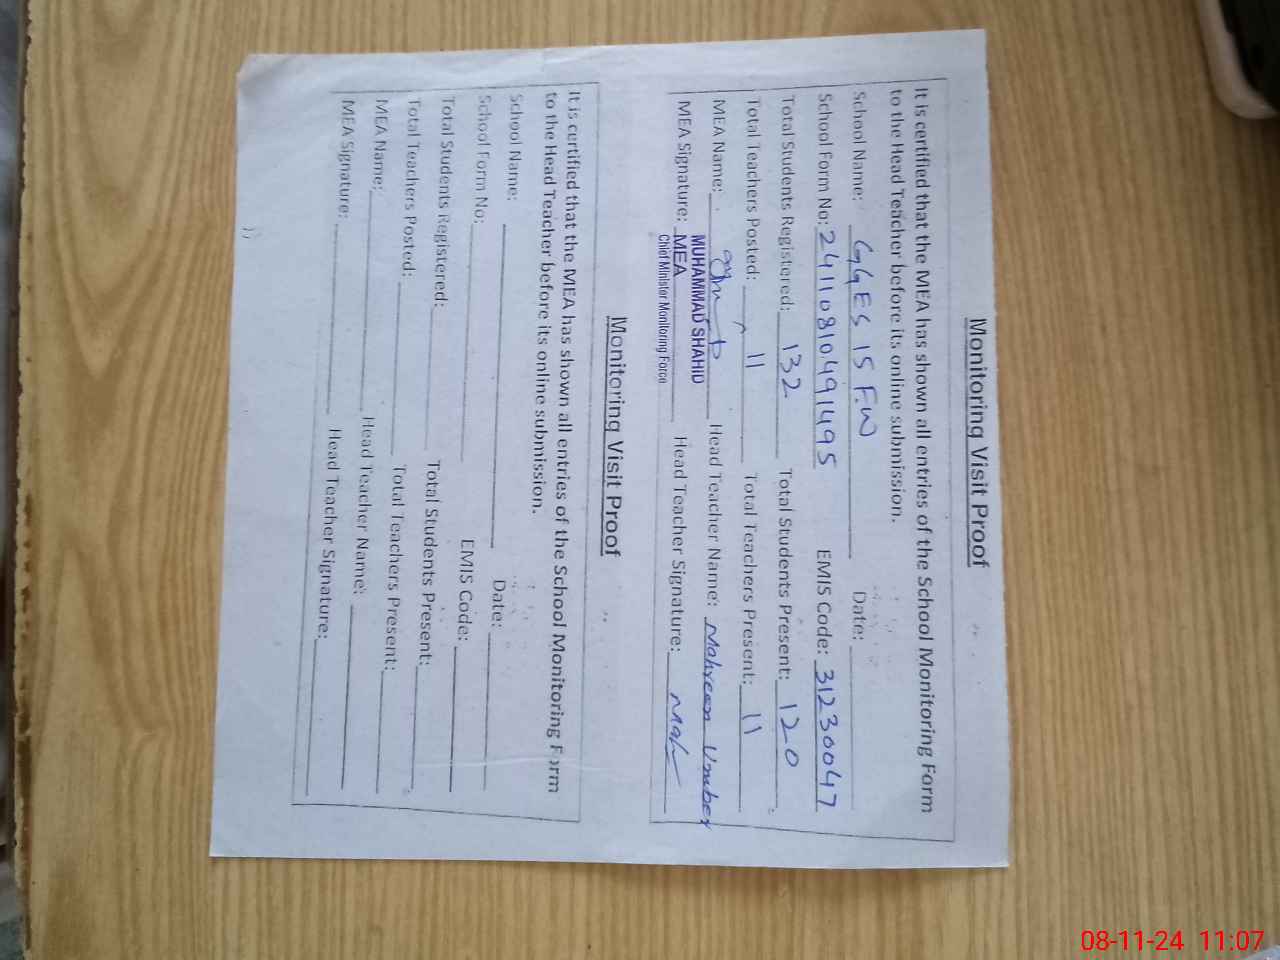 Monitoring Visit Proof
It is certified that the MEA has shown all entries of the School Monitoring Form
to the Head Teacher before its online submission.
School Name: GGES 15 F.W Date:
School Form No: 24110810491495 EMIS Code: 31230047
Total Students Registered: 132 Total Students Present: 120
Total Teachers Posted: 11 Total Teachers Present: 11
MEA Name: Head Teacher Name: Mahreen Umber
MUHAMMAD SHAHID
MEA Signature: MEA Head Teacher Signature:
Chief Minister Monitoring Force
Monitoring Visit Proof
It is certified that the MEA has shown all entries of the School Monitoring Form
to the Head Teacher before its online submission.
School Name: Date:
School Form No: EMIS Code:
Total Students Registered: Total Students Present:
Total Teachers Posted: Total Teachers Present:
MEA Name: Head Teacher Name:
MEA Signature: Head Teacher Signature:
08-11-24 11:07